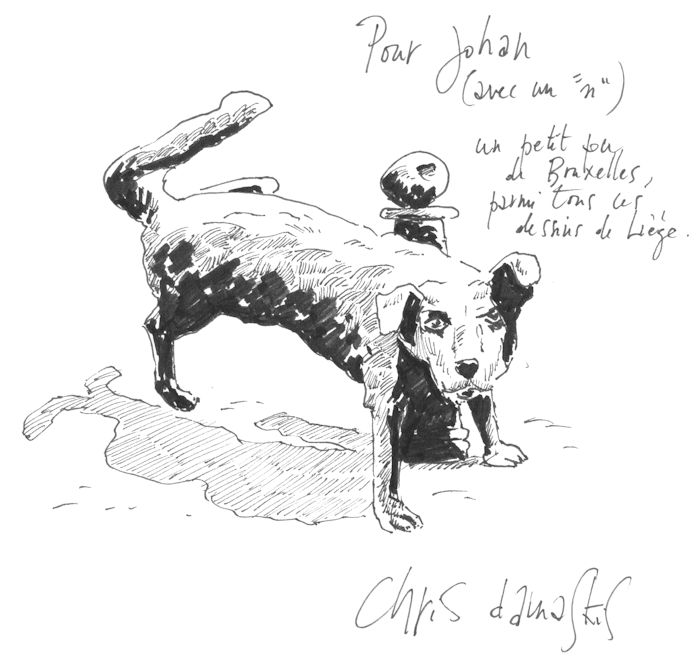 Pour Johan
(avec un "n")
un petit peu
de Bruxelles,
parmi tous ces
dessins de Liège.
Chris damaskis